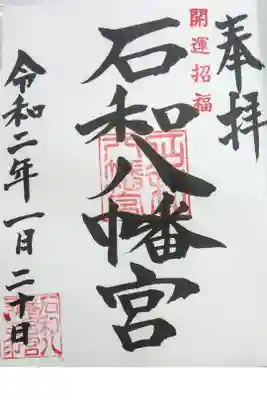 奉拝
開運招福
石和八幡宮
令和二年一月二十日